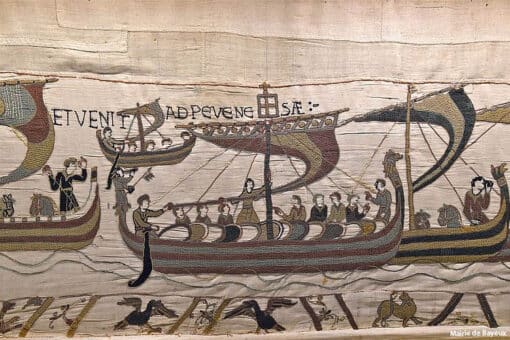 ET VENIT AD PEVENE SÆ :-
Mairie de Bayeux